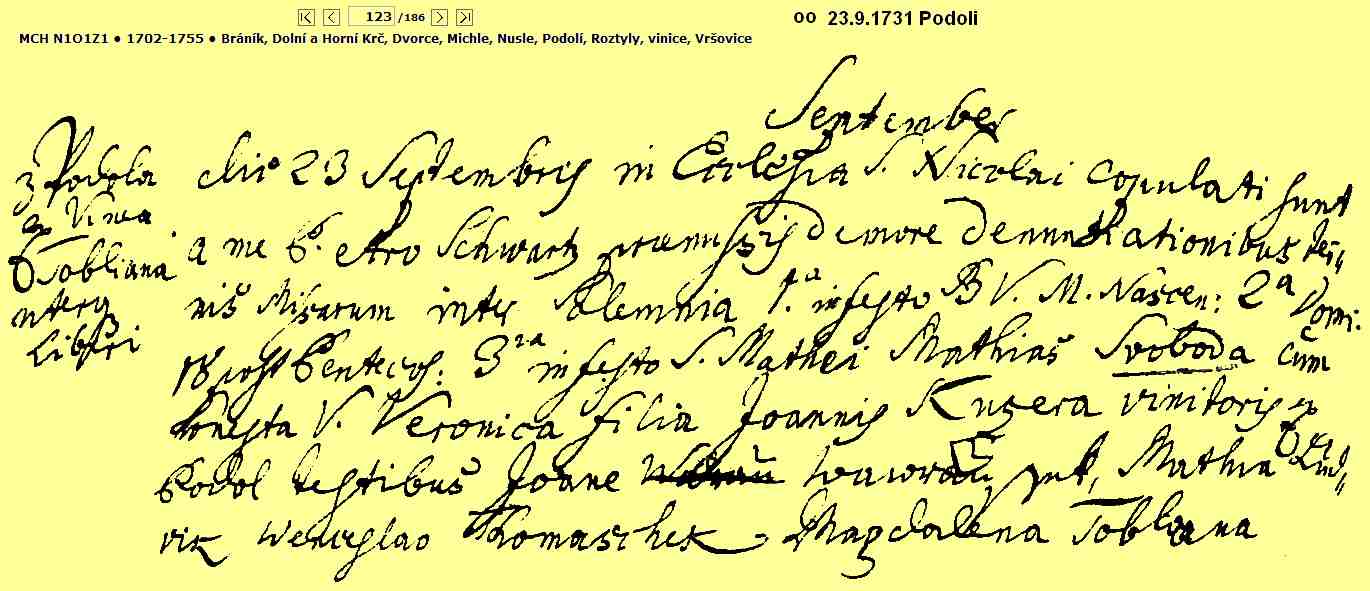 123 /186
oo 23.9.1731 Podoli
MCH N1O1Z1 • 1702-1755 • Bráník, Dolní a Horní Krč, Dvorce, Michle, Nusle, Podolí, Roztyly, vinice, Vršovice
September
z Podola
ex Vinea
Tobliana
uterq
Liberi
die 23 Septembris in Ecclesia S. Nicolai copulati sunt
a me P. Petro Schwartz praemissis de more denuntiationibus ter„
nis Missarum inter Solemnia 1.a in festo B V. M. Nascen: 2a Domi:
18 post Pentecos: 3tia in festo S. Mathei Mathias Svoboda cum
honesta V. Veronica filia Joannis Kuzera vinitoris ex
Podol testibus Joane Wawra Mathia
Wenceslao Thomaschek Magdalena Tobliana